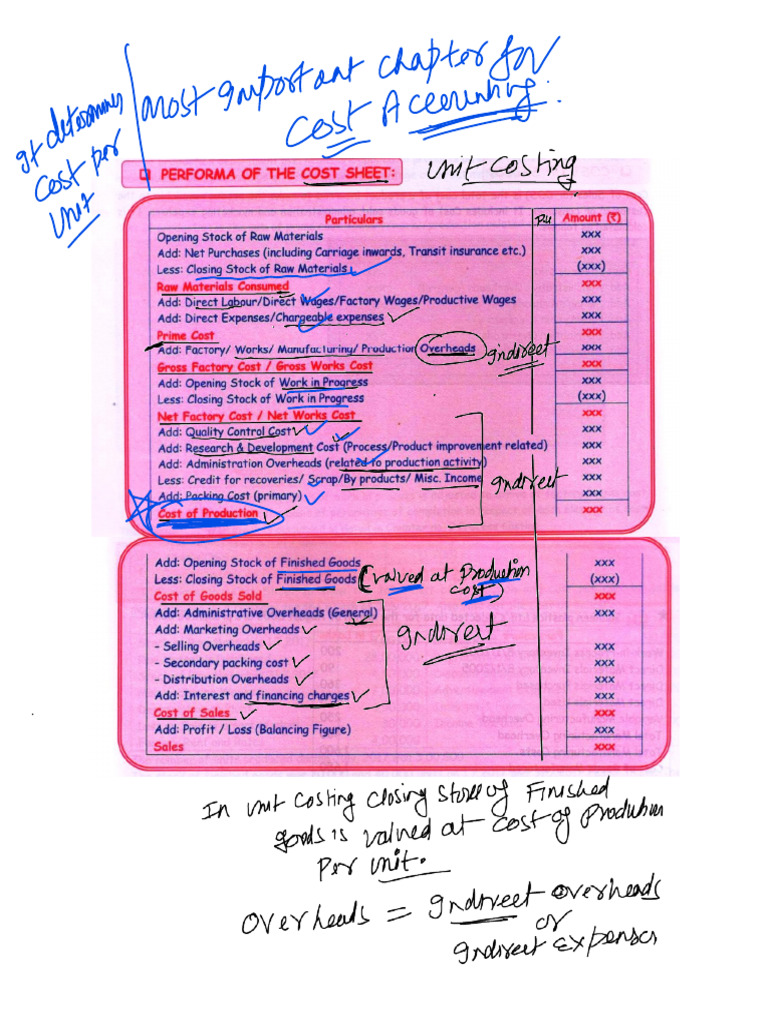 most Important chapter for
Cost Accounting.
It determines
cost per
unit
❑ PERFORMA OF THE COST SHEET: Unit costing
Particulars PU Amount (₹)
Opening Stock of Raw Materials xxx
Add: Net Purchases (including Carriage inwards, Transit insurance etc.) xxx
Less: Closing Stock of Raw Materials (xxx)
Raw Materials Consumed xxx
Add: Direct Labour/Direct Wages/Factory Wages/Productive Wages xxx
Add: Direct Expenses/Chargeable expenses xxx
Prime Cost xxx
Add: Factory/ Works/ Manufacturing/ Production Overheads Indirect xxx
Gross Factory Cost / Gross Works Cost xxx
Add: Opening Stock of Work in Progress xxx
Less: Closing Stock of Work in Progress (xxx)
Net Factory Cost / Net Works Cost xxx
Add: Quality Control Cost xxx
Add: Research & Development Cost (Process/Product improvement related) xxx
Add: Administration Overheads (related to production activity) xxx
Less: Credit for recoveries/ Scrap/By products/ Misc. Income Indirect xxx
Add: Packing Cost (primary) xxx
Cost of Production xxx
Add: Opening Stock of Finished Goods xxx
Less: Closing Stock of Finished Goods (valued at Production (xxx)
cost)
Cost of Goods Sold xxx
Add: Administrative Overheads (General) xxx
Add: Marketing Overheads Indirect
- Selling Overheads xxx
- Secondary packing cost xxx
- Distribution Overheads xxx
Add: Interest and financing charges xxx
Cost of Sales xxx
Add: Profit / Loss (Balancing Figure) xxx
Sales xxx
In unit costing closing stock of Finished
goods is valued at cost of Production
Per unit.
Overheads = Indirect overheads
or
Indirect Expenses